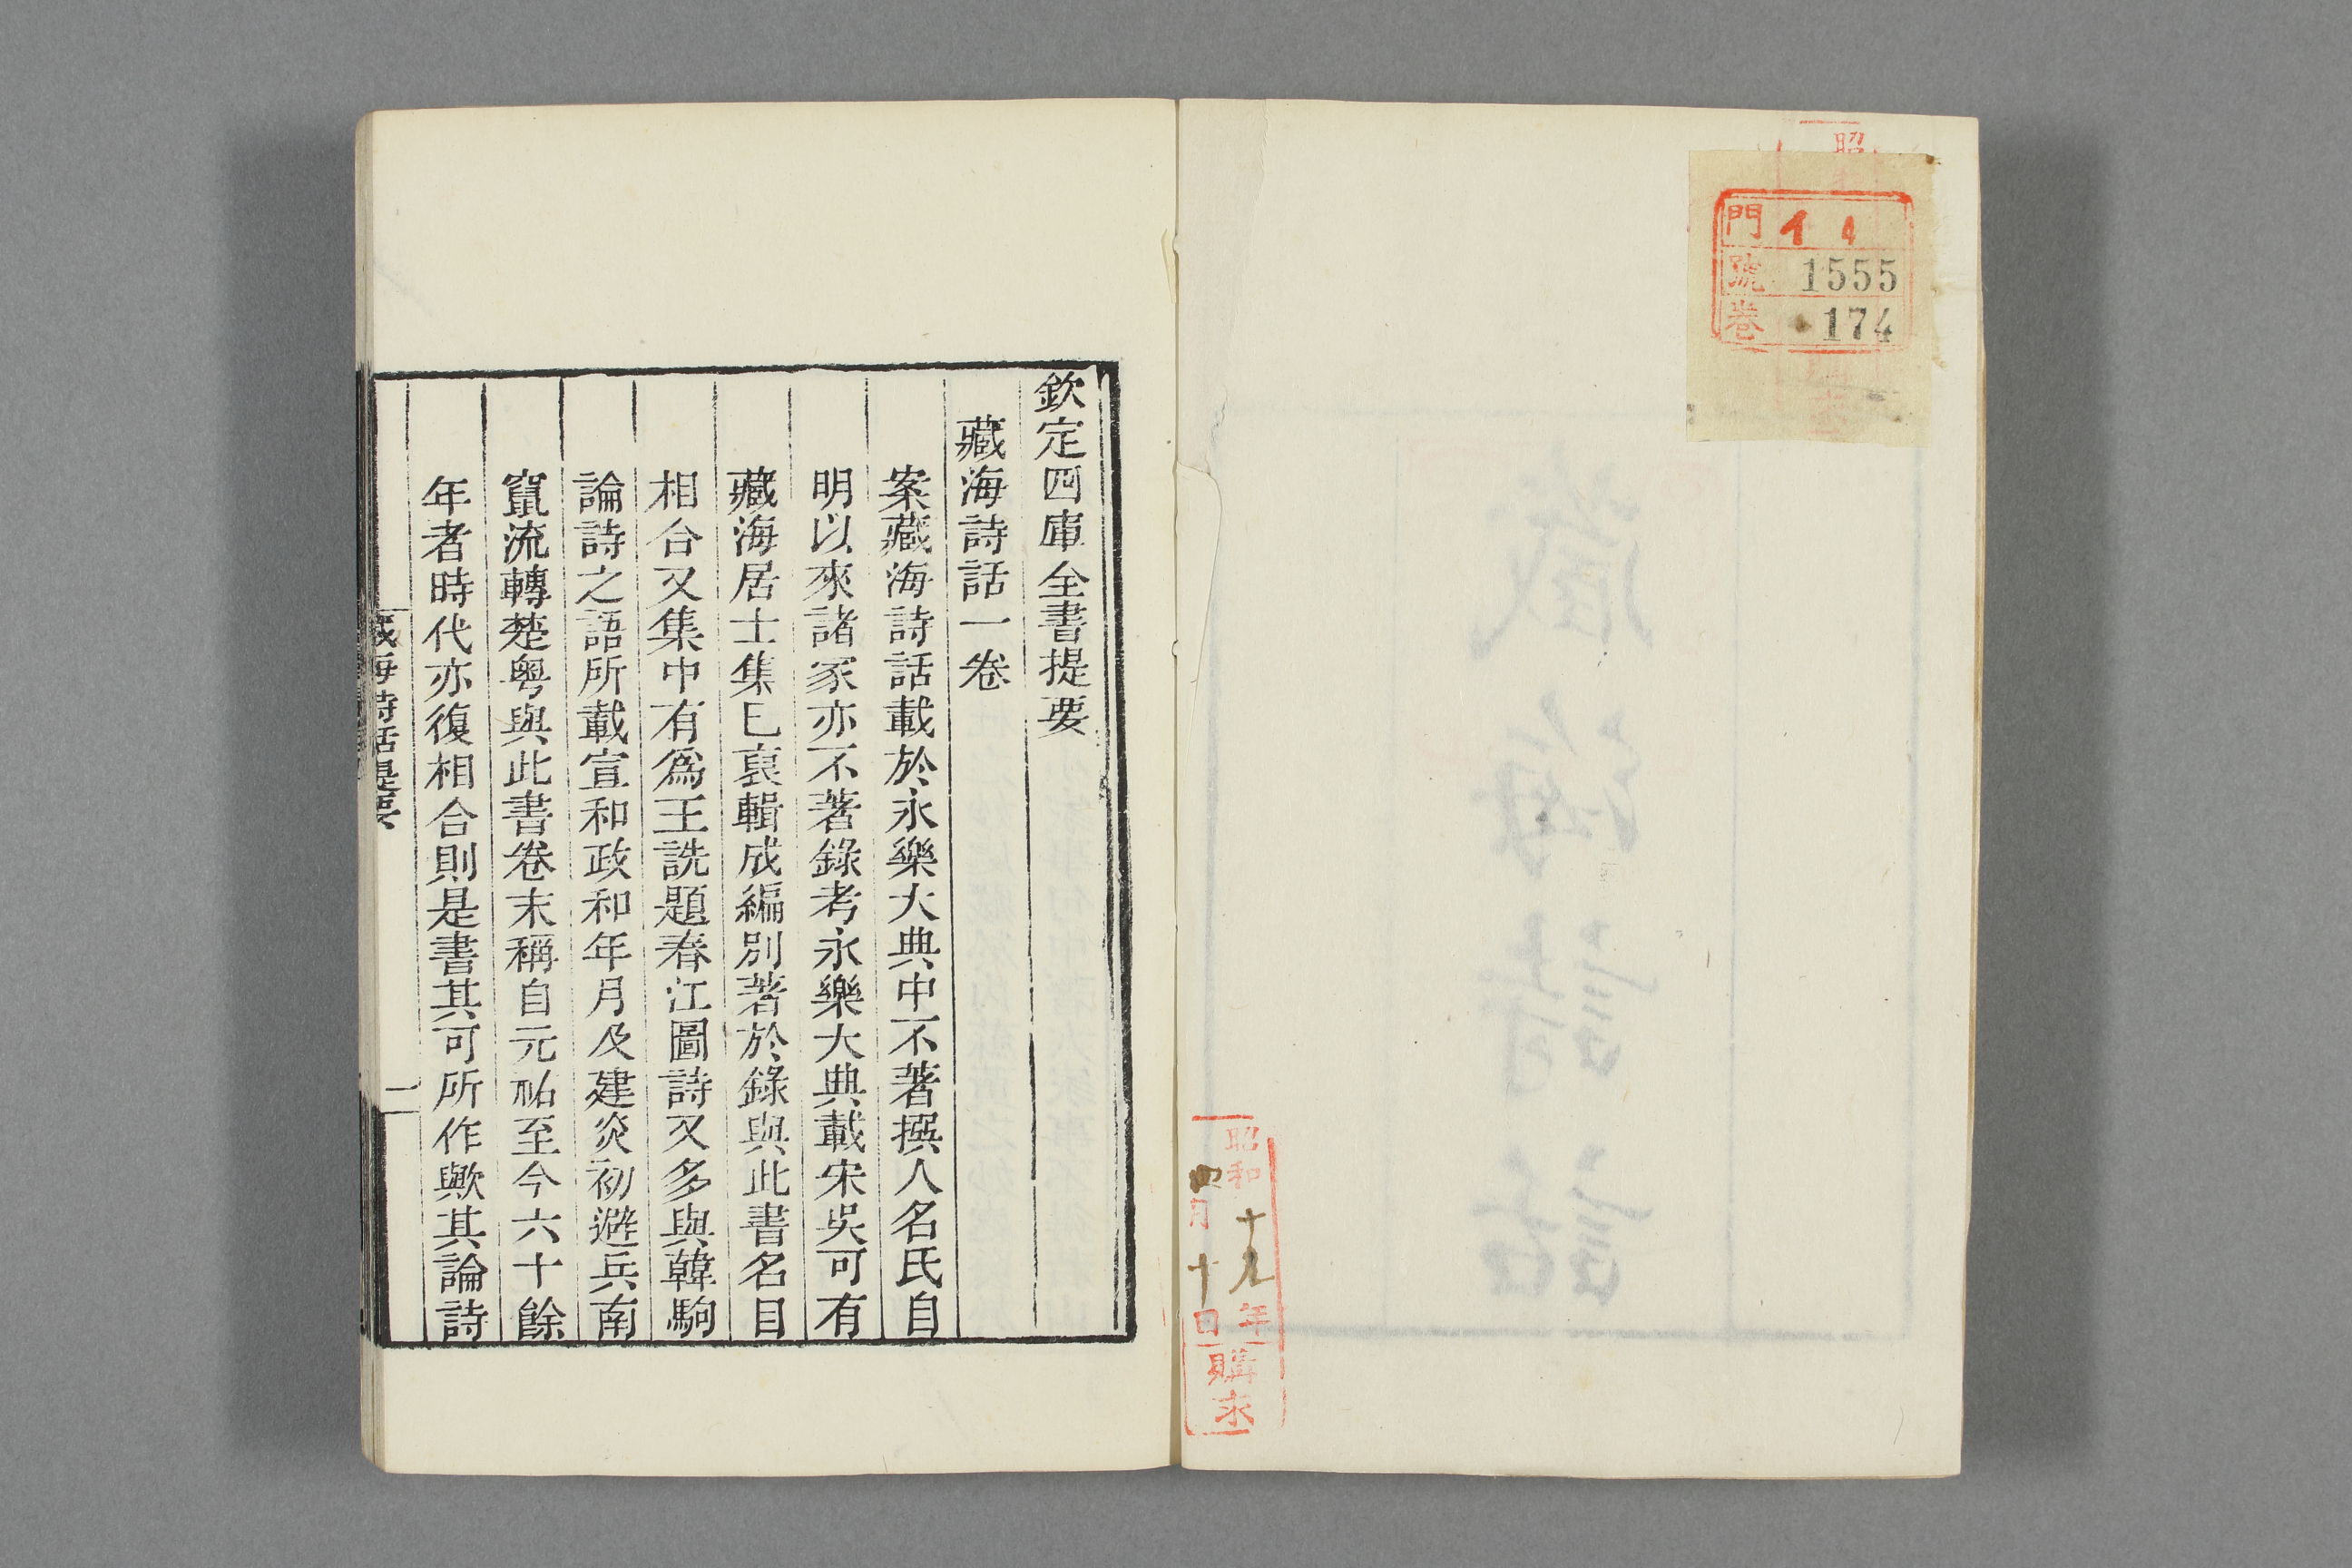 門 イ 4
號 1555
卷 174
昭和十九年
四月十日
購求
欽定四庫全書提要
藏海詩話一卷
案藏海詩話載於永樂大典中不著撰人名氏自
明以來諸家亦不著錄考永樂大典載宋吳可有
藏海居士集已裒輯成編別著於錄與此書名目
相合又集中有爲王詵題春江圖詩又多與韓駒
論詩之語所載宣和政和年月及建炎初避兵南
竄流轉楚粤與此書卷末稱自元祐至今六十餘
年者時代亦復相合則是書其可所作歟其論詩
藏海詩話提要
一